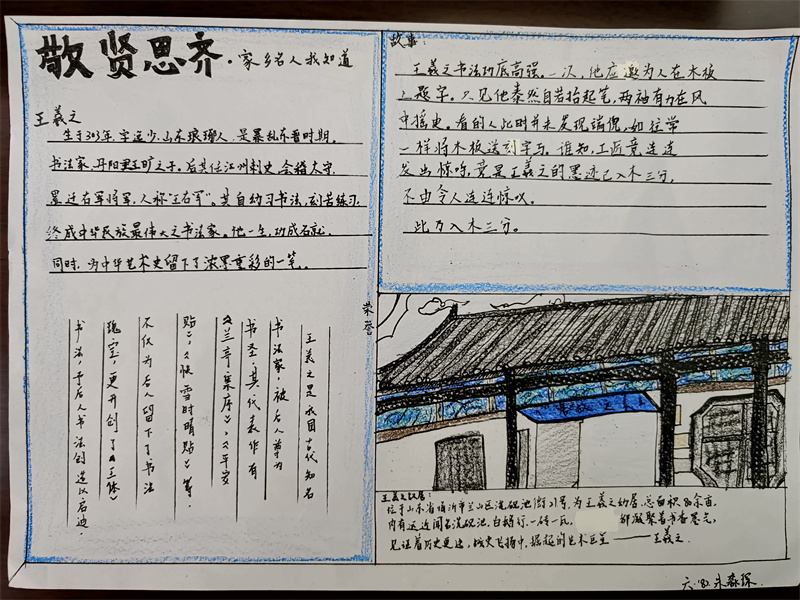 敬贤思齐·家乡名人我知道
王羲之
生于303年,字逸少,山东琅琊人,是晋乱东晋时期,
书法家,丹阳尹王旷之子。后其任江州刺史,会稽太守,
累迁右军将军,人称"王右军"。其自幼习书法,刻苦练习,
终成中华民族最伟大之书法家。他一生,功成名就,
同时,为中华艺术史留下了浓墨重彩的一笔。
荣誉
王羲之是我国古代知名
书法家,被后人尊为
书圣,其代表作有
《兰亭集序》,《平安
贴》,《快雪时晴贴》等,
不仅为后人留下了书法
瑰宝,更开创了"王体"
书法,予后人书法创造以启迪。
故事:
王羲之书法功底高强。一次,他应邀为人在木板
上题字。只见他泰然自若抬起笔,两袖有力在风
中摇曳。看的人此时并未发现端倪,如往常
一样将木板送刻字匠,谁知,工匠竟连连
发出惊呼,竟是王羲之的墨迹已入木三分,
不由令人连连惊叹。
此乃入木三分。
王羲之故居:
位于山东省临沂市兰山区洗砚池街21号,为王羲之幼居,总面积80余亩,
内有远近闻名洗砚池,白鹅行,一砖一瓦, 都凝聚着书香墨气,
见证着历史更迭,战火飞扬中,崛起的艺术巨星——王羲之。
六·